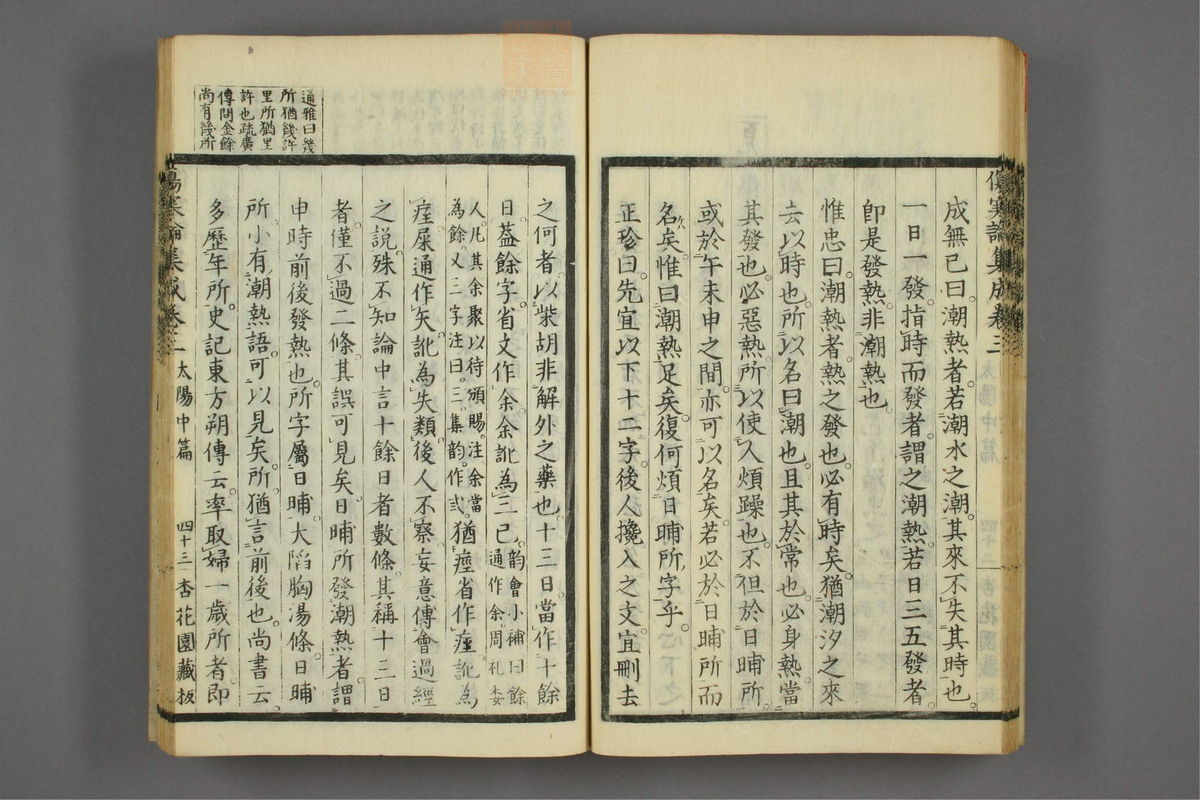 傷寒論集成卷三
成無己曰潮熱者若潮水之潮其來不失其時也
一日一發指時而發者謂之潮熱若日三五發者
卽是發熱非潮熱也
惟忠曰潮熱者熱之發也必有時矣猶潮汐之來
去以時也所以名曰潮也且其於常也必身熱當
其發也必惡熱所以使人煩躁也不但於日晡所
或於午未申之間亦可以名矣若必於日晡所而
名矣惟曰潮熱足矣復何煩日晡所字乎
正珍曰先宜以下十二字後人攙入之文宜刪去
之何者以柴胡非解外之藥也十三日當作十餘
日蓋餘字省文作余余訛為三已韵會小補曰餘通作余周礼委
人凡其余聚以待頒賜注余當為餘又二字注曰三集韵作弎猶痙省作痓訛為
痓屎通作矢訛為失類後人不察妄意傅會過經
之說殊不知論中言十餘日者數條其稱十三日
者僅不過二條其誤可見矣日晡所發潮熱者謂
申時前後發熱也所字屬日晡大陷胸湯條日晡
所小有潮熱語可以見矣所猶言前後也尚書云
多歷年所史記東方朔傳云率取婦一歲所者即
通雅曰幾
所猶幾許
里所猶里
許也疏廣
傳問金餘
尚有幾所
傷寒論集成卷三 太陽中篇 四十三 杏花園藏板